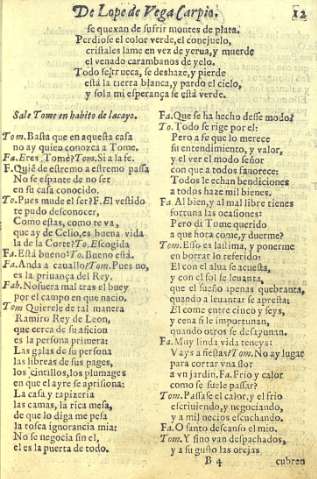 De Lope de Vega Carpio. 12
se quexan de sufrir montes de plata.
Perdiose el color verde, el conejuelo,
cristales lame en vez de yerua, y muerde
el venado carambanos de yelo.
Todo se trueca, se deshaze, y pierde
està la tierra blanca, y pardo el cielo,
y sola mi esperança se està verde.
Sale Tome en habito de lacayo.
Tom. Basta que en aquesta casa
no ay quien conozca a Tome.
Fa. Eres Tomè? Tom. Si a la fe.
F. Quiè de estremo a estremo passa
No se espante de no ser
en su casa conocido.
To. Pues mude el ser? F. El vestido
te pudo desconocer,
Como estas, como te va,
que ay de Celio, es buena vida
la de la Corte? To. Escogida
Fa. Està bueno? To. Bueno està.
Fa. Anda a cauallo? Tom. Pues no,
es la priuança del Rey.
Fab. No fuera mal tras el buey
por el campo en que nacio.
Tom Quierele de tal manera
Ramiro Rey de Leon,
que cerca de su aficion
es la persona primera:
Las galas de su persona
las libreas de sus pages,
los cintillos, los plumages
en que el ayre se aprisiona:
La casa y tapizeria
las camas, la rica mesa,
de que lo diga me pesa
la tosca ignorancia mia:
No se negocia sin el,
el es la puerta de todo.
Fa. Que se ha hecho desse modo?
To. Todo se rige por el:
Pero a se que lo merece
su entendimiento, y valor,
y el ver el modo señor
con que a todos fauorece:
Todos le echan bendiciones
a todos haze mil bienes.
Fa Al bien, y al mal libre tienes
fortuna las ocasiones:
Pero di Tome querido
a que hora come, y duerme?
Tom. Esso es lastima, y ponerme
en borrar lo referido:
El con el alua se acuesta,
y con el sol se leuanta,
que el sueño apenas quebranta,
quando a leuantar se apresta:
El come entre cinco y seys,
y cena si le importunan,
quando otros se desayunan.
Fa. Muy linda vida teneys:
Vays a fiestas? Tom. No ay lugar
para cortar vna flor
a vn jardin. Fa. Frio y calor
como se suele passar?
Tom. Passase el calor, y el frio
escriuiendo, y negociando,
y a mil necios escuchando.
Fa. O santo descanso el mio.
Tom. Y sino van despachados,
y a su gusto las orejas
B 4 cubren